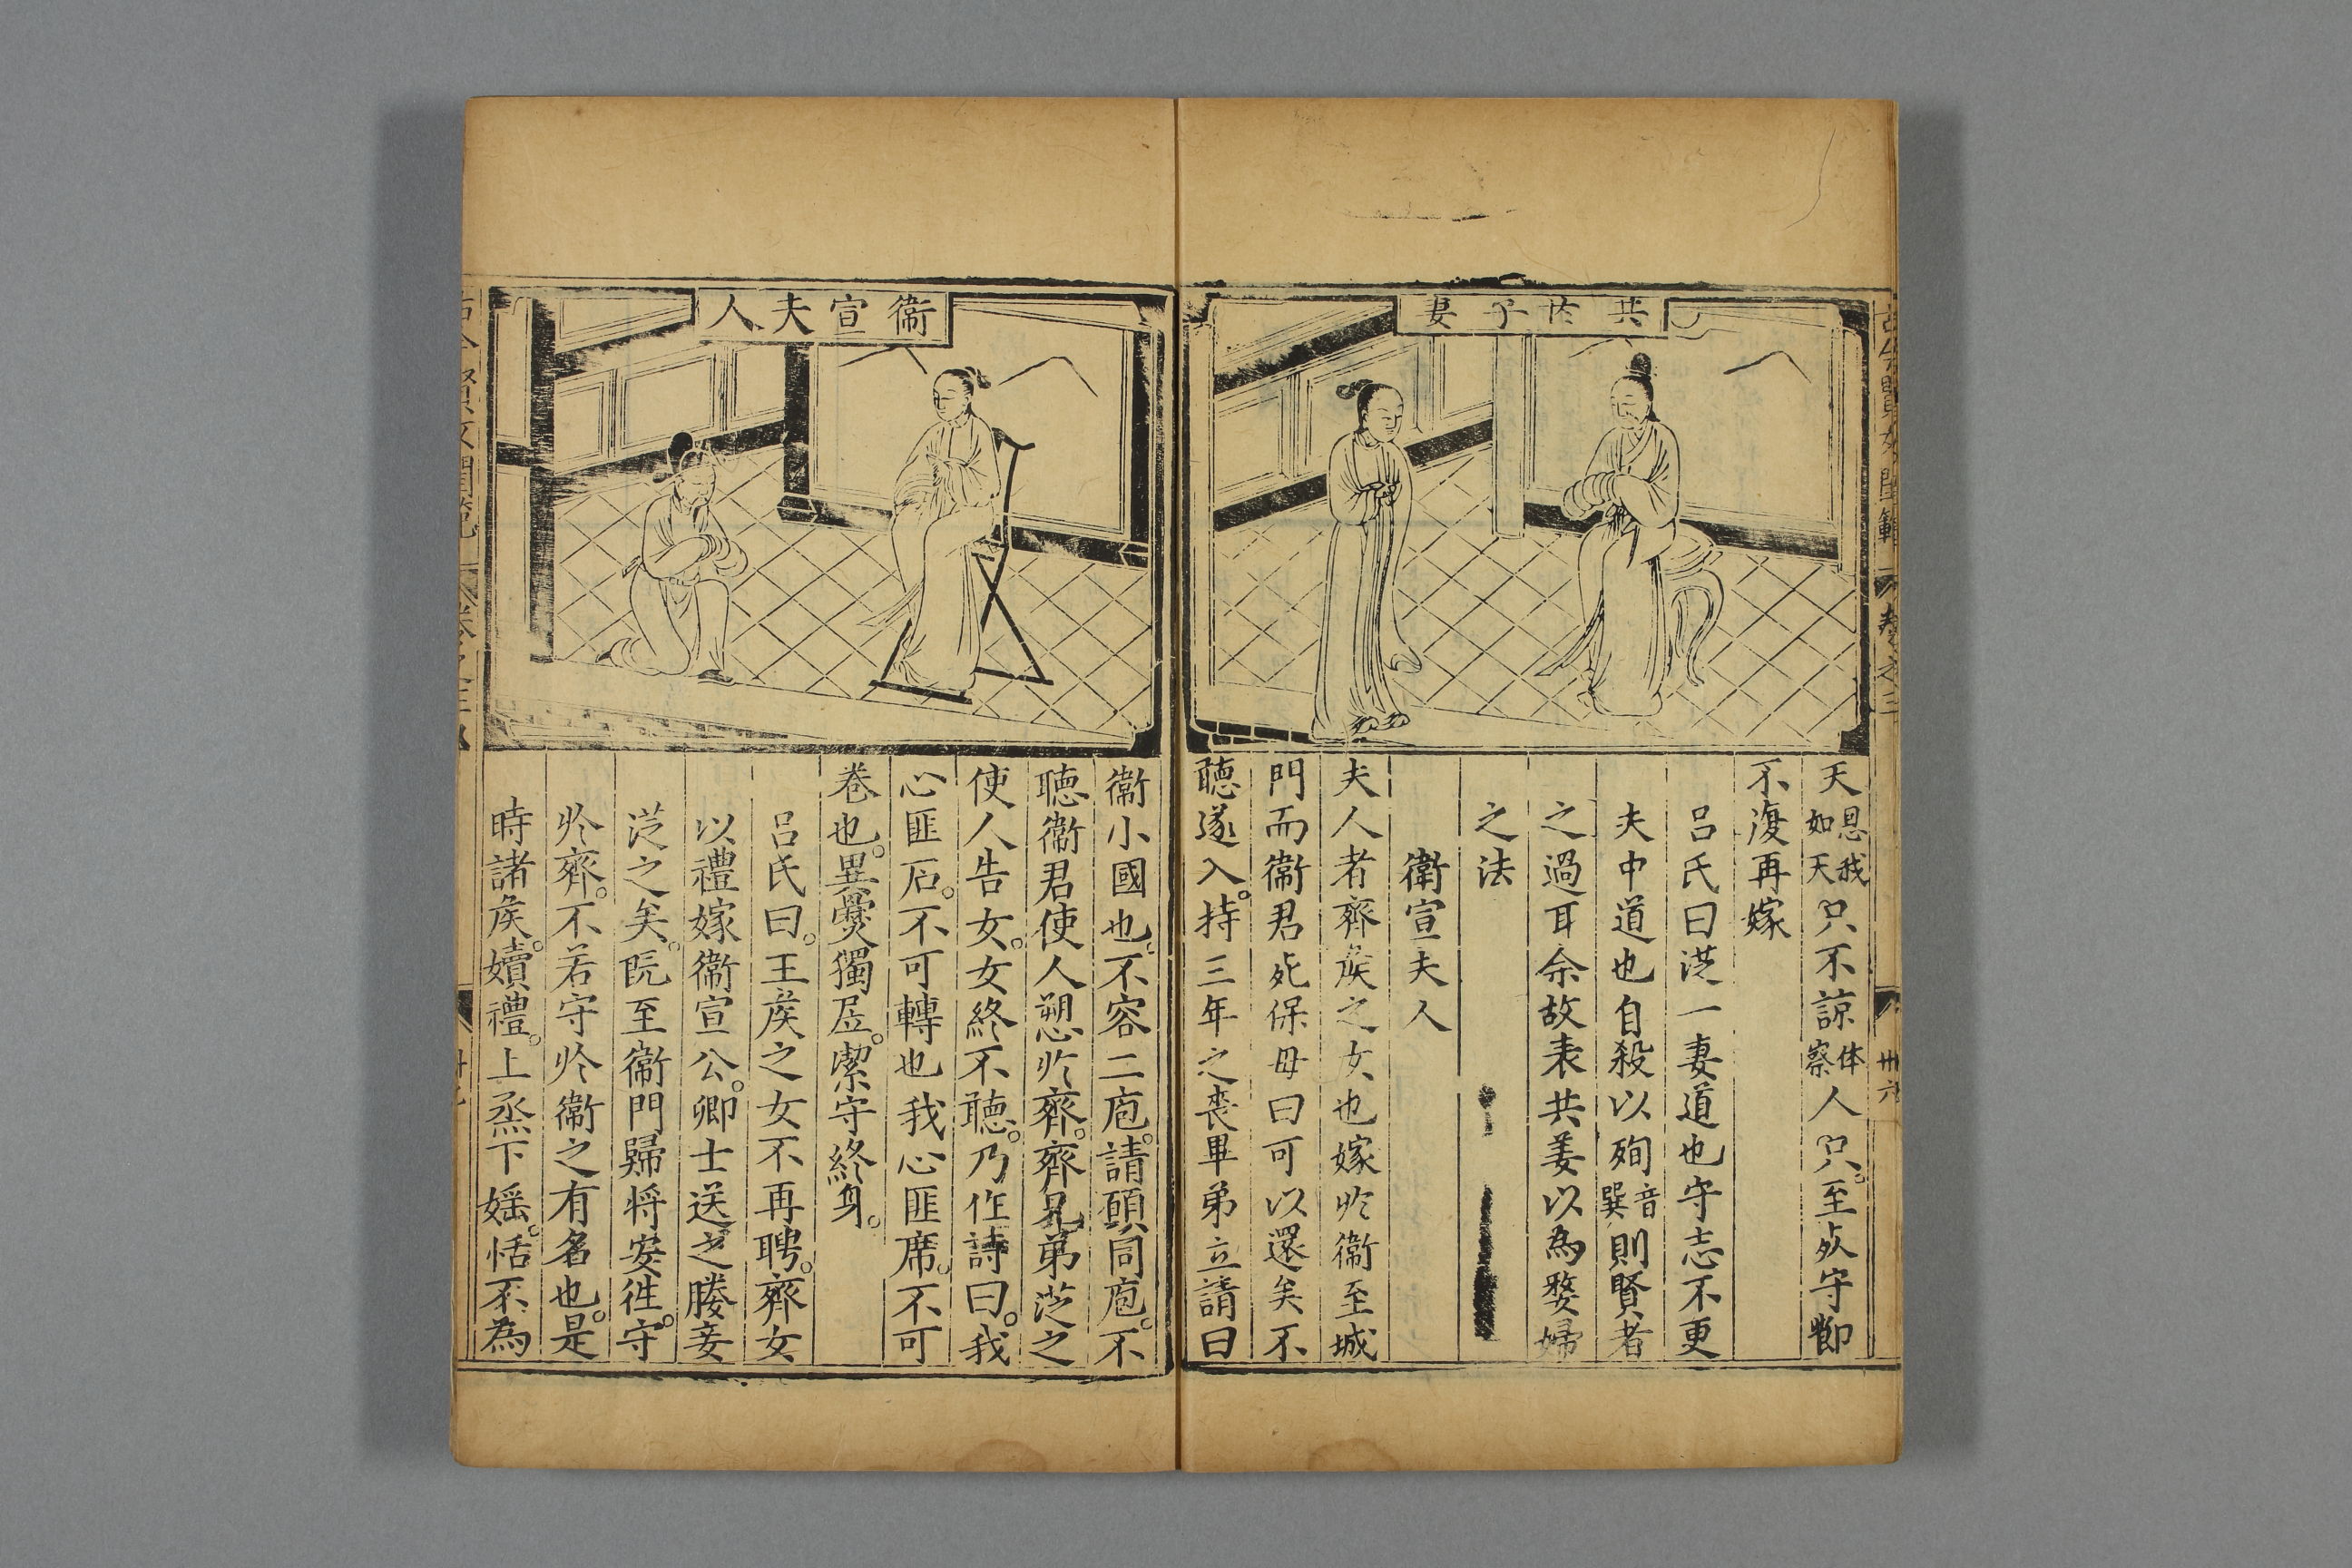 古今賢女閨範
卷之三
卅六
共伯子妻
天恩我如天只不諒体察人只至死守節
不復再嫁
呂氏曰從一妻道也守志不更
夫中道也自殺以殉音巽則賢者
之過耳余故表共姜以為嫠婦
之法
衛宣夫人
夫人者齊矦之女也嫁於衞至城
門而衞君死保母曰可以還矣不
聽遂入持三年之喪畢弟立請曰
衞宣夫人
衞小國也不容二庖請願同庖不
聽衞君使人愬於齊齊兄弟從之
使人告女女終不聽乃作詩曰我
心匪石不可轉也我心匪席不可
卷也異爨獨居潔守終身
呂氏曰王矦之女不再聘齊女
以禮嫁衞宣公卿士送之媵妾
從之矣既至衞門歸將安往守
於齊不若守於衞之有名也是
時諸矦嬻禮上烝下婬恬不為